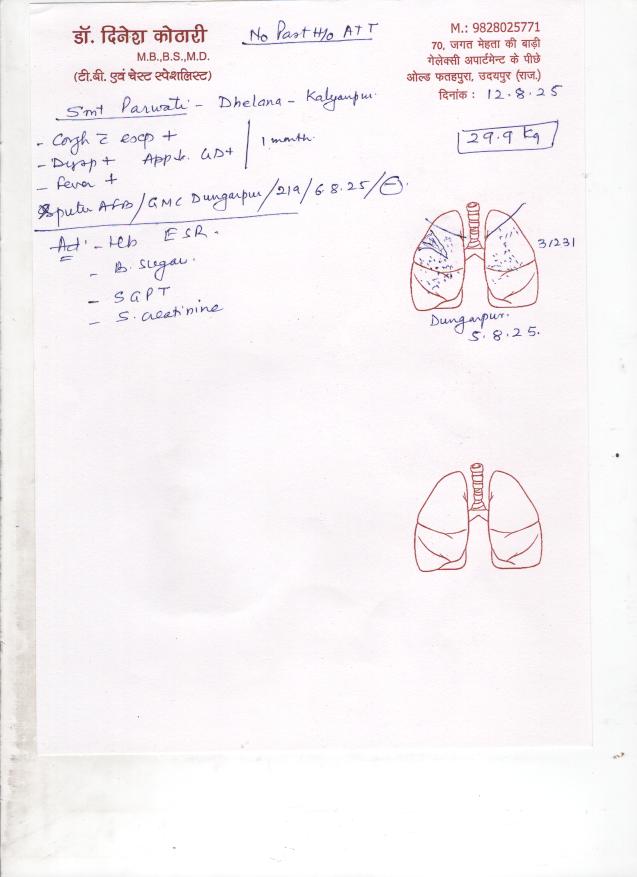 डॉ. दिनेश कोठारी
M.B.,B.S.,M.D.
(टी.बी. एवं चेस्ट स्पेशलिस्ट)
No Past H/o ATT
M.: 9828025771
70, जगत मेहता की बाड़ी
गेलेक्सी अपार्टमेन्ट के पीछे
ओल्ड फतहपुरा, उदयपुर (राज.)
दिनांक : 12.8.25
Smt Parwati - Dhelana - Kalyanpur.
29.9 Kg
- Cough c̄ exp +
- Dysp + App ↓. GD+
1 month.
- Fever +
Sputum AFB/GMC Dungarpur/219/6.8.25/⊖.
Ad: - Hb ESR.
- B. Sugar.
- SGPT
- S. Creatinine
31231
Dungarpur.
5.8.25.